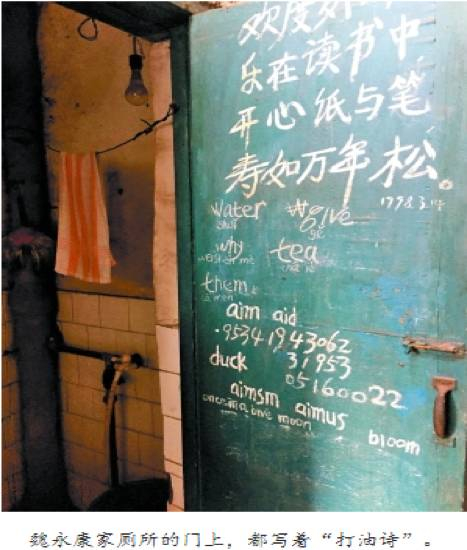 欢度
乐在读书中
开心纸与笔
寿如万年松。
1998.3.
water give
why tea
them
aim aid
.95341943062
duck 31953
05160022
aimsm aimus
moon bloom
魏永康家厕所的门上，都写着“打油诗”。